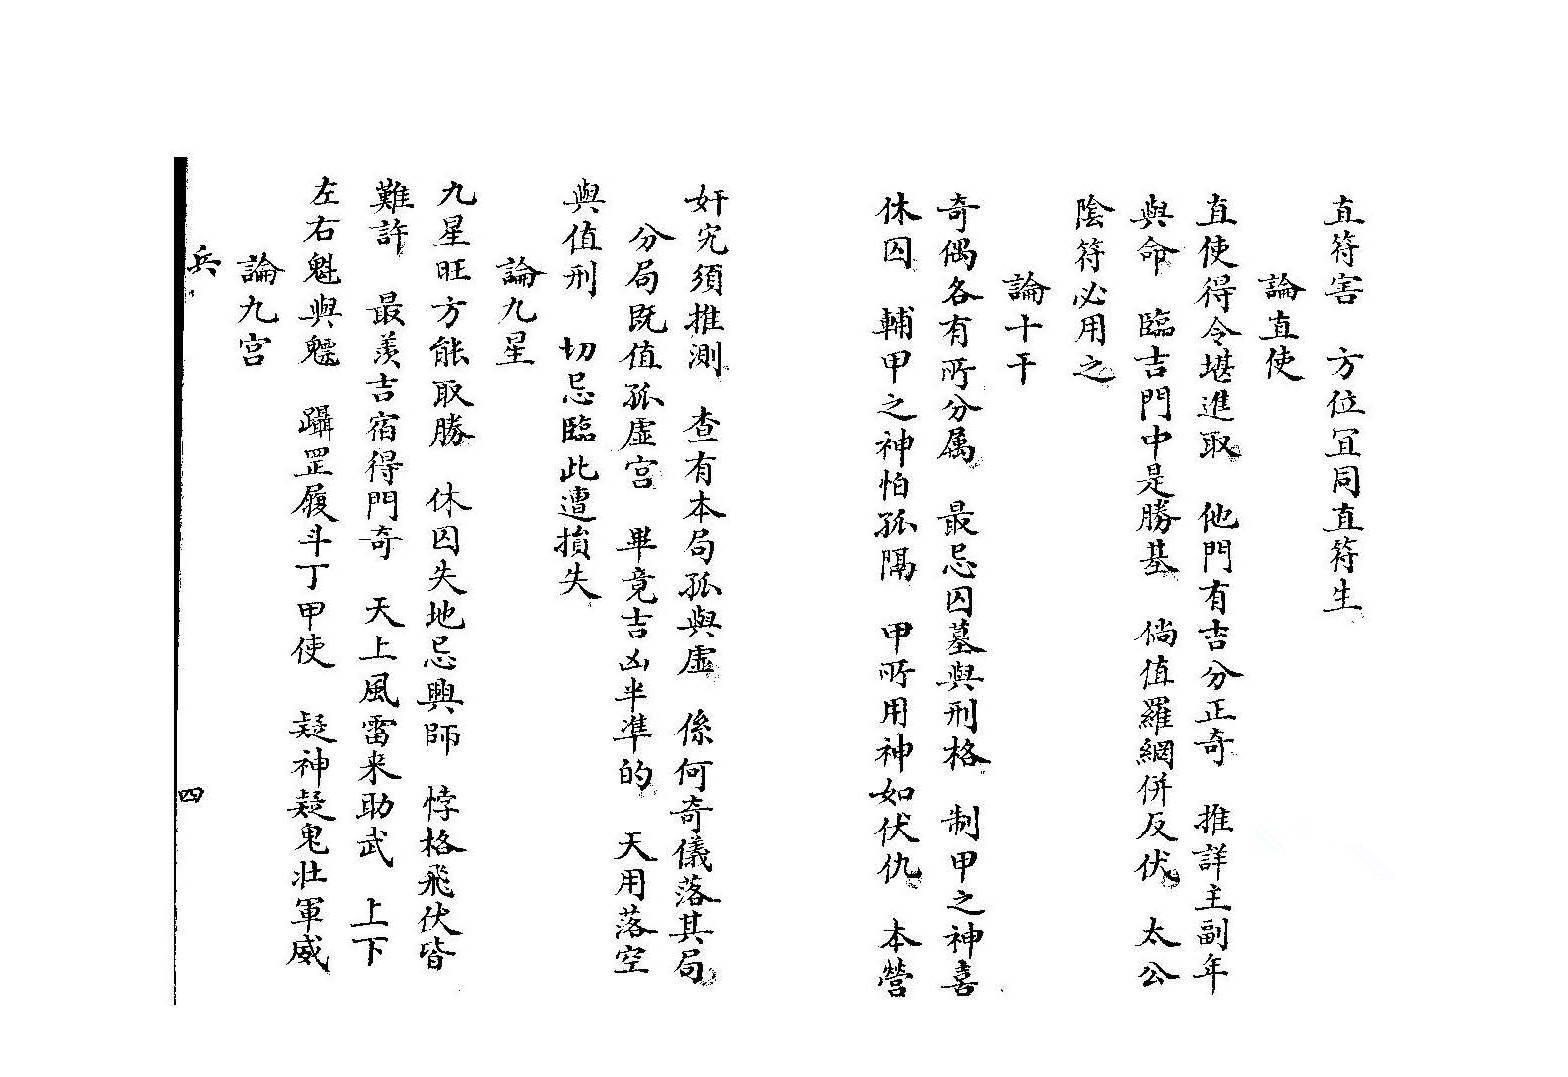 直符害　方位冝同直符生
論直使
直使得令堪進取　他門有吉分正奇　推詳主副年
與命　臨吉門中是勝基　倘值羅網併反伏　太公
陰符必用之
論十干
奇偶各有所分属　最忌囚墓與刑格　制甲之神喜
休囚　輔甲之神怕孤隔　甲所用神如伏仇　本營
奸宄須推測　查有本局孤與虛　係何奇儀落其局
分局既值孤虛宮　畢竟吉凶半準的　天用落空
與值刑　切忌臨此遭損失
論九星
九星旺方能取勝　休囚失地忌興師　悖格飛伏皆
難許　最羨吉宿得門奇　天上風雷来助武　上下
左右魁與魒　躡罡履斗丁甲使　疑神疑鬼壯軍威
論九宮
兵　四